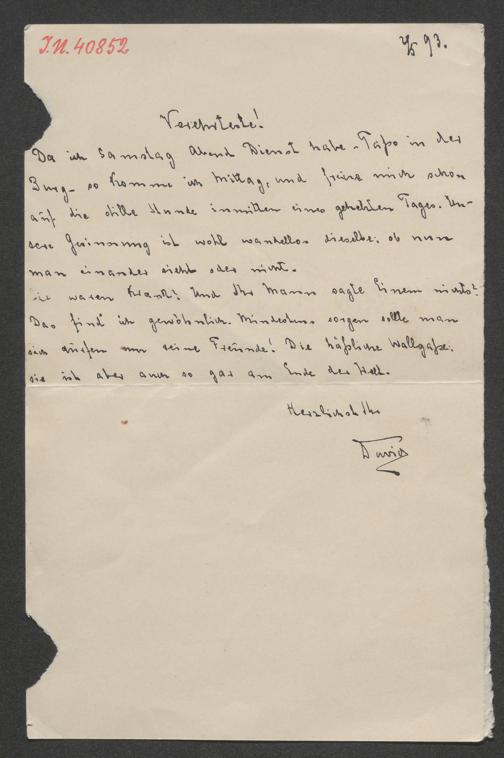 I.N. 40852
2/5 93.
Verehrteste!
Da ich Samstag Abend Dienst habe - Tasso in der
Burg - so komme ich Mittag, und freue mich schon
auf die stille Stunde inmitten eines gehetzten Tages. Un-
sere Gesinnung ist wohl wandellos dieselbe; ob nun
man einander sieht oder nicht.
Sie waren krank? Und Ihr Mann sagte Einem nichts?
Das find' ich gewöhnlich. Mindestens sorgen sollte man
sich dürfen um seine Freunde! Die häßliche Wallgaße;
sie ist aber auch so gar am Ende der Welt.
Herzlichst Ihr
David